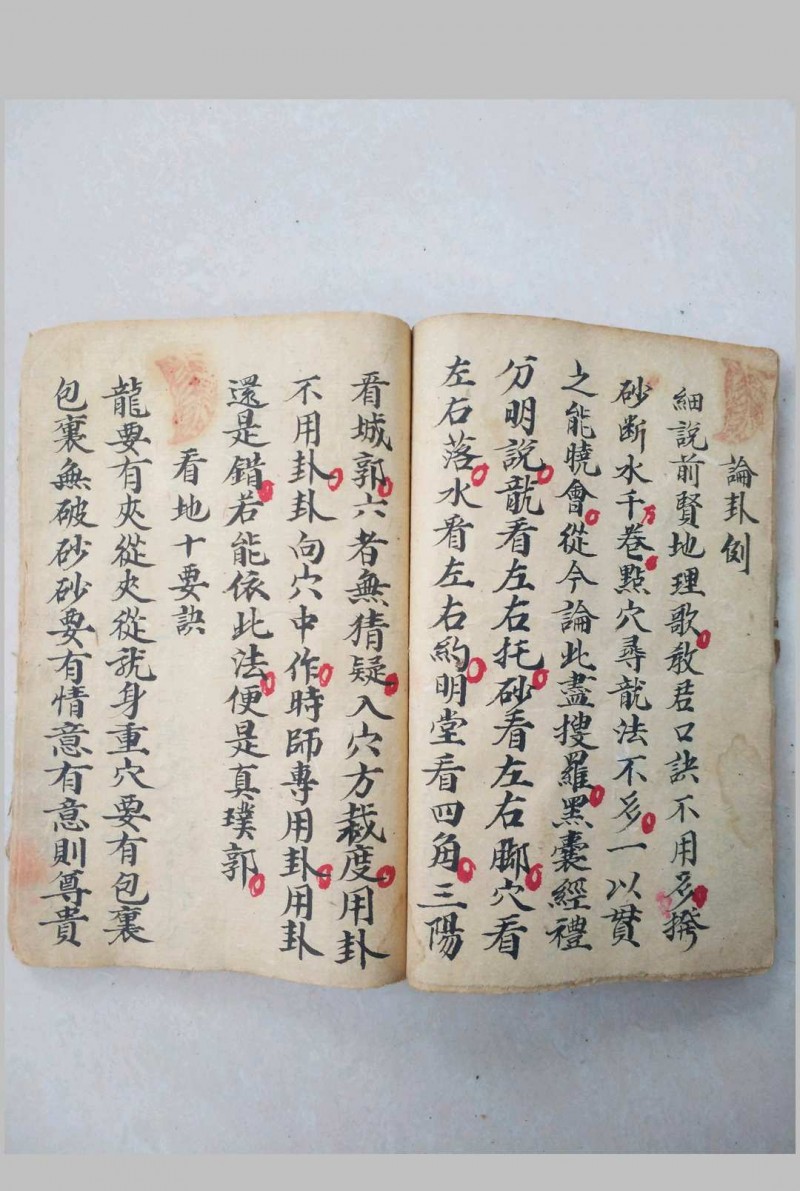 論卦例
細說前賢地理歌教君口訣不用多撥
砂斷水千万卷點穴尋龍法不多一以貫
之能曉會從今論此盡搜羅黑囊經禮
分明說龍看左右托砂看左右腳穴看
左右落水看左右約明堂看四角三陽
看城郭六者無猜疑入穴方裁度用卦
不用卦卦向穴中作時師專用卦用卦
還是錯若能依此法便是真璞郭
看地十要訣
龍要有夾從夾從就身重穴要有包裹
包裹無破砂砂要有情意有意則尊貴